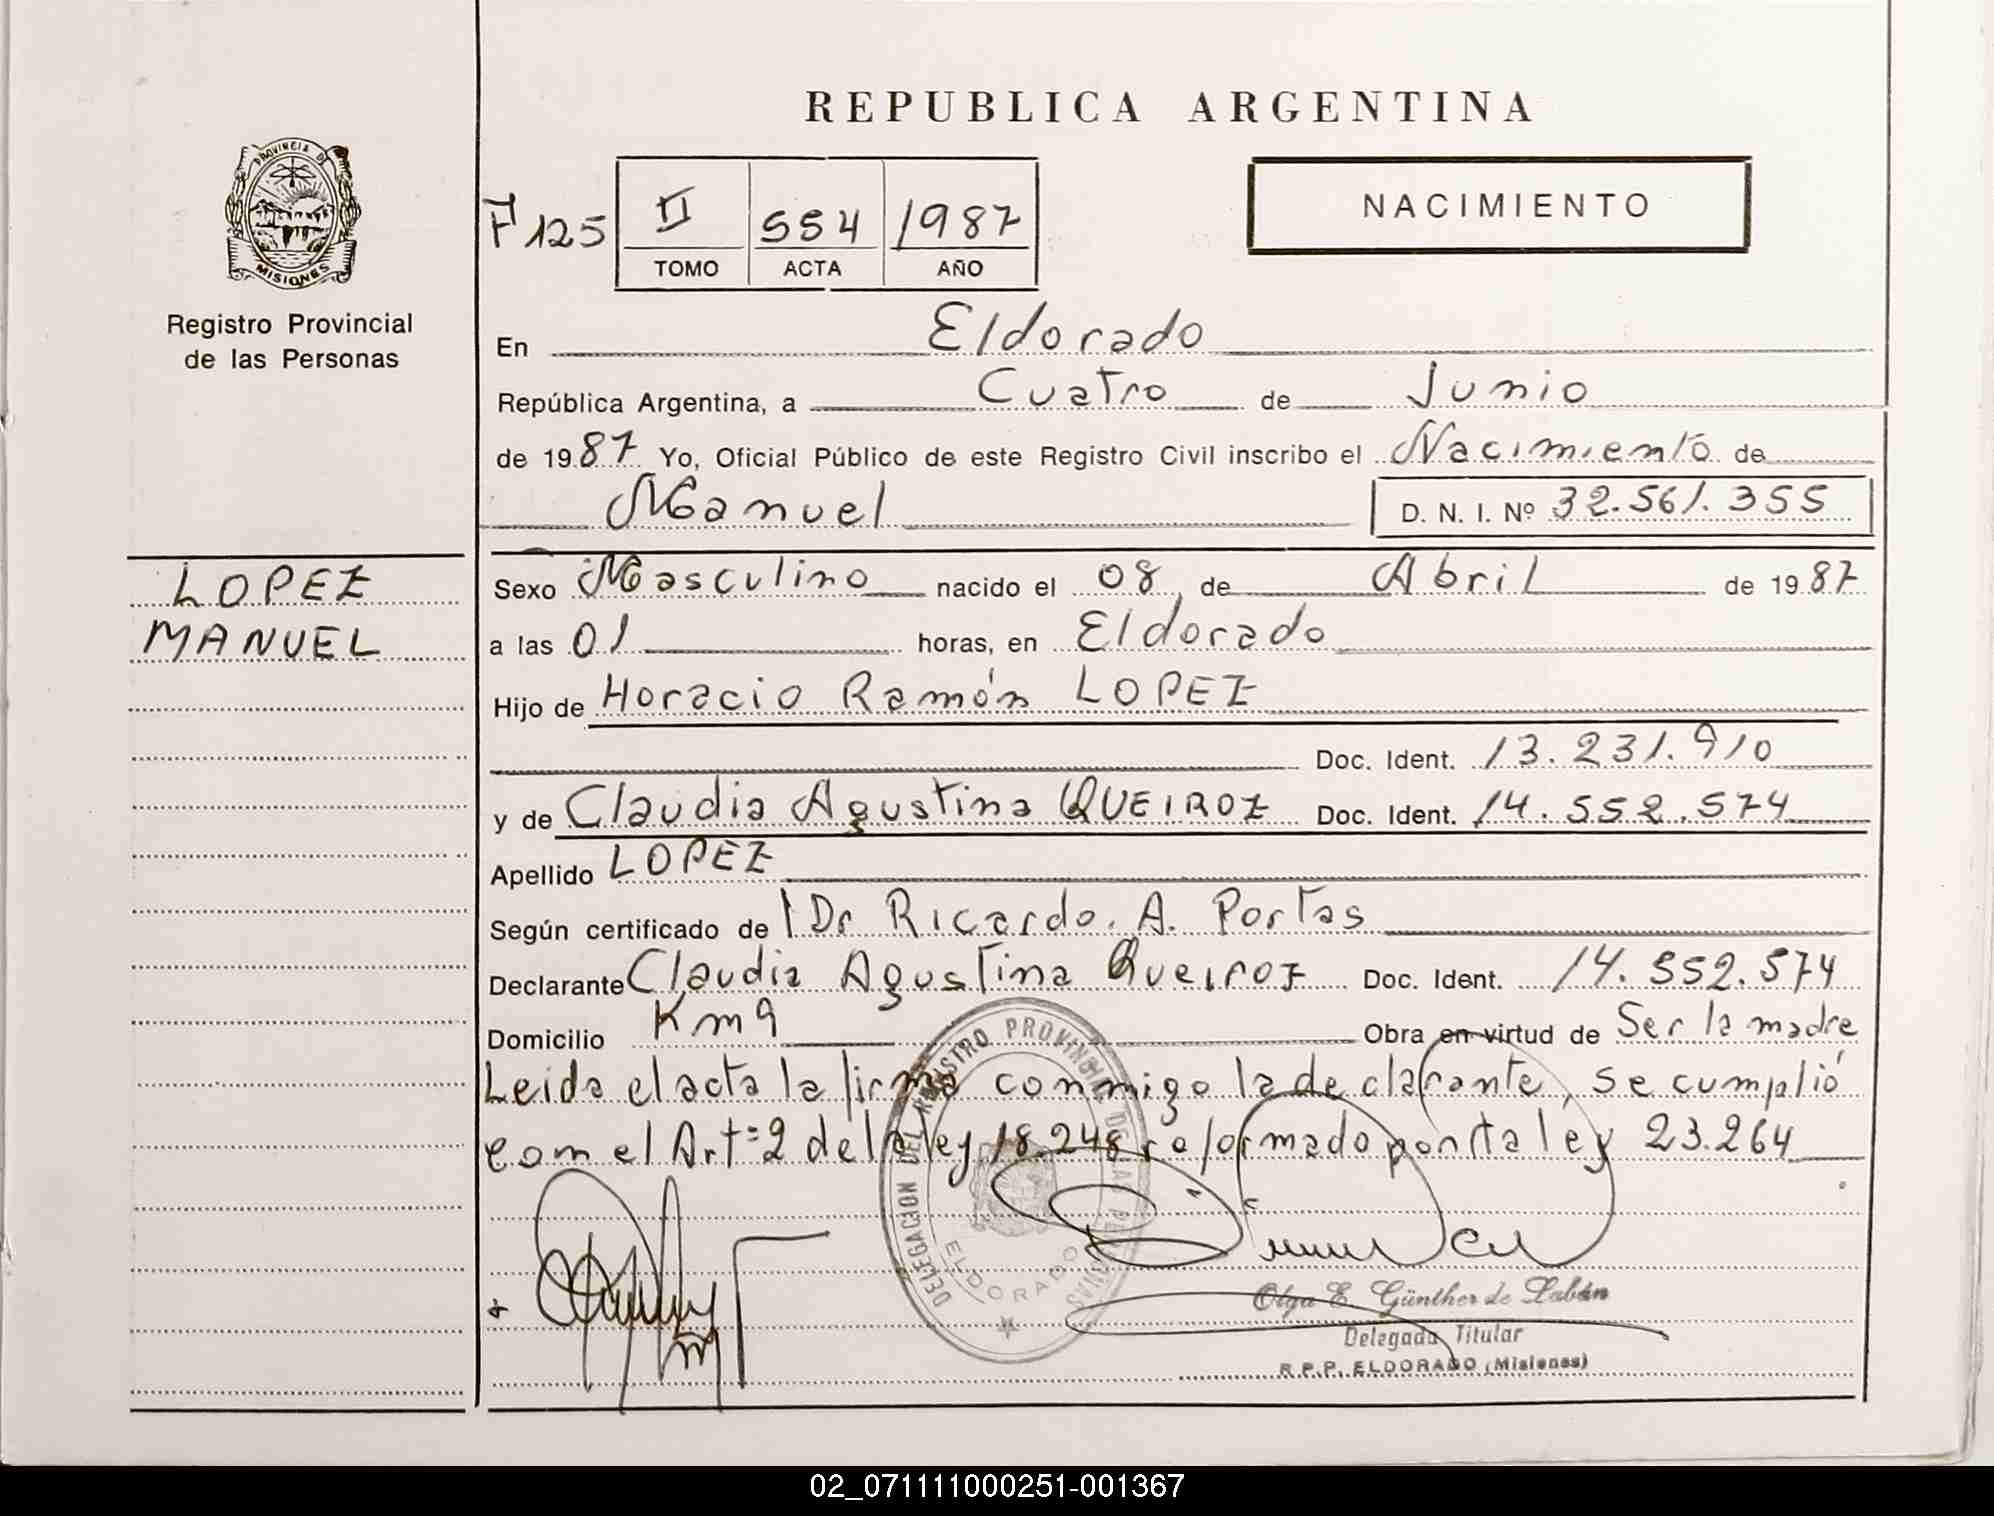 REPUBLICA ARGENTINA
PROVINCIA DE
MISIONES
Registro Provincial
de las Personas
Fº 125
II 554 1987
TOMO ACTA AÑO
NACIMIENTO
En Eldorado
República Argentina, a Cuatro de Junio
de 1987 Yo, Oficial Público de este Registro Civil inscribo el Nacimiento de
Manuel D. N. I. Nº 32.561.355
LOPEZ
MANUEL
Sexo Masculino nacido el 08 de Abril de 1987
a las 01 horas, en Eldorado
Hijo de Horacio Ramón LOPEZ
Doc. Ident. 13.231.910
y de Claudia Agustina QUEIROZ Doc. Ident. 14.552.574
Apellido LOPEZ
Según certificado de Dr Ricardo. A. Portas
Declarante Claudia Agustina Queiroz Doc. Ident. 14.552.574
Domicilio Km 9 Obra en virtud de Ser la madre
Leida el acta la firma conmigo la declarante, se cumplió
con el Art=2 de la ley 18.248 reformado por la ley 23.264
DELEGACION DEL REGISTRO PROVINCIAL DE LAS PERSONAS
ELDORADO
Olga E. Günther de Labán
Delegada Titular
R.P.P. ELDORADO (Misiones)
02_071111000251-001367